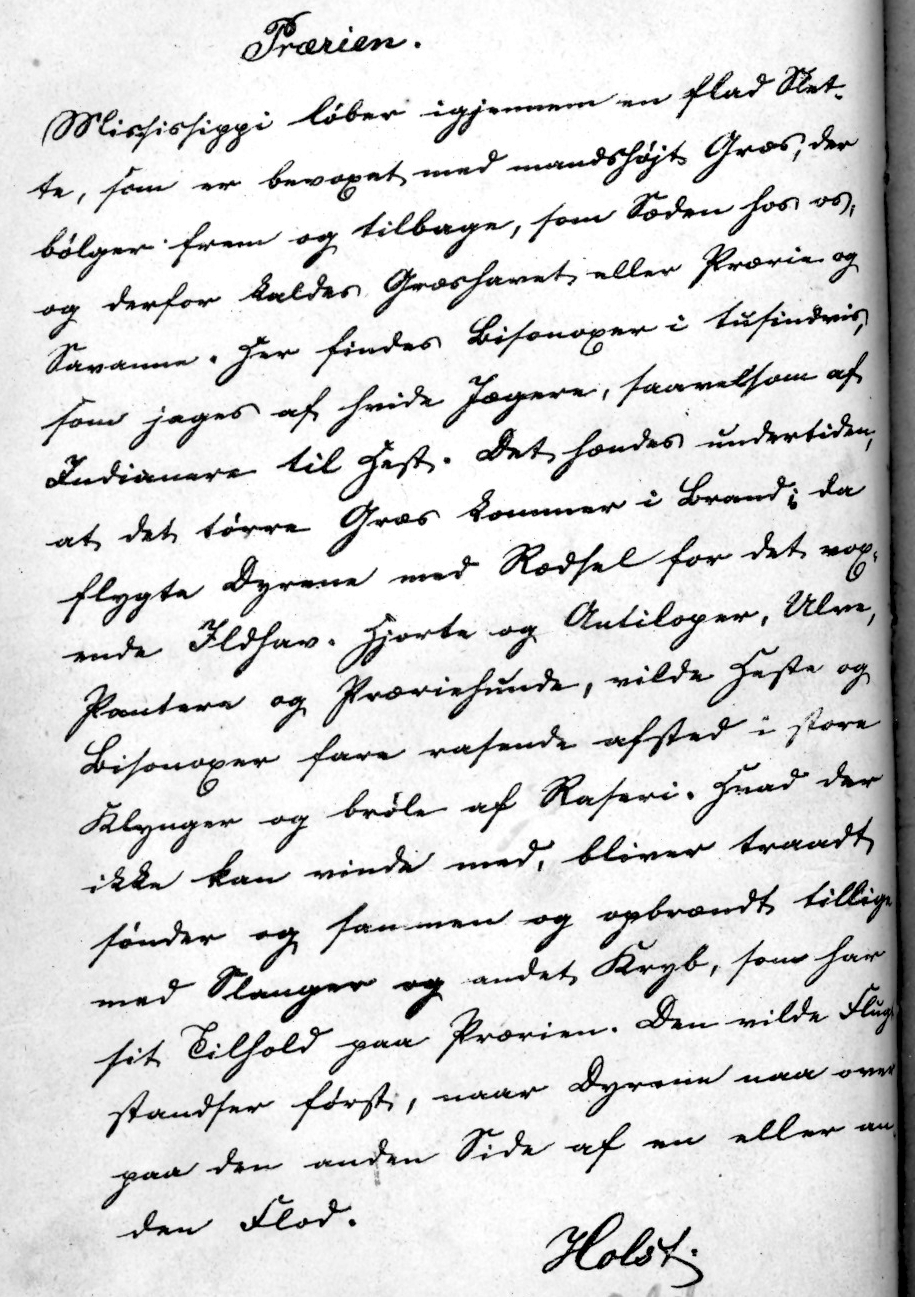 Prærien.
Mississippi löber igjennem en flad Slet-
te, som er bevoxet med mandshøjt Græs, der
bölger frem og tilbage, som Sæden hos os,
og derfor kaldes Græshavet eller Prærie og
Savanne. Her findes Bisonoxer i tusindvis,
som jages af hvide Jægere, saavelsom af
Indianere til Hest. Det hændes undertiden,
at det törre Græs kommer i Brand; da
flygte Dyrene med Rædsel for det vox-
ende Ildhav. Hjorte og Antiloper, Ulve,
Pantere og Præriehunde, vilde Heste og
Bisonoxer fare rasende afsted i store
Klynger og bröle af Raseri. Hvad der
ikke kan vinde med, bliver traadt
sönder og sammen og opbrændt tillige
med Slanger og andet Kryb, som har
sit Tilhold paa Prærien. Den vilde Flugt
standser först, naar Dyrene naa over
paa den anden Side af en eller an-
den Flod.
Holst.